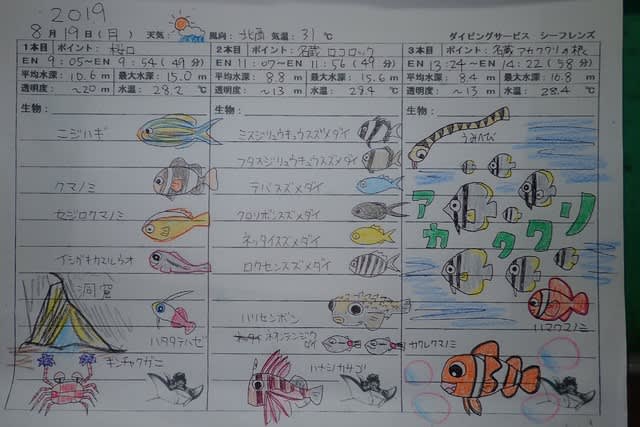 2019
8月19日(月) 天気: 風向: 北南 気温: 31℃ ダイビングサービス シーフレンズ
1本目 ポイント: 桜口
EN 9:05~EN 9:54(49分)
平均水深: 10.6 m 最大水深: 15.0 m
透明度: ~20 m 水温: 28.2 ℃
生物:
ニジハギ
クマノミ
セジロクマノミ
イシガキカエルウオ
洞窟
ハタタテハゼ
キンチャクガニ
2本目 ポイント: 名蔵 ロコロック
EN 11:07~EN 11:56(49分)
平均水深: 8.8 m 最大水深: 15.6 m
透明度: ~13 m 水温: 29.4 ℃
生物:
ミスジリュウキュウスズメダイ
フタスジリュウキュウスズメダイ
デバスズメダイ
クロリボンスズメダイ
ネッタイスズメダイ
ロクセンスズメダイ
ハリセンボン
ネオンテンジクダイ
ハナミノカサゴ
3本目 ポイント: 名蔵 アカククリの根
EN 13:24~EN 14:22(58分)
平均水深: 8.4 m 最大水深: 10.8 m
透明度: ~13 m 水温: 28.4 ℃
生物:
うみへび
アカククリ
ハマクマノミ
カクレクマノミ